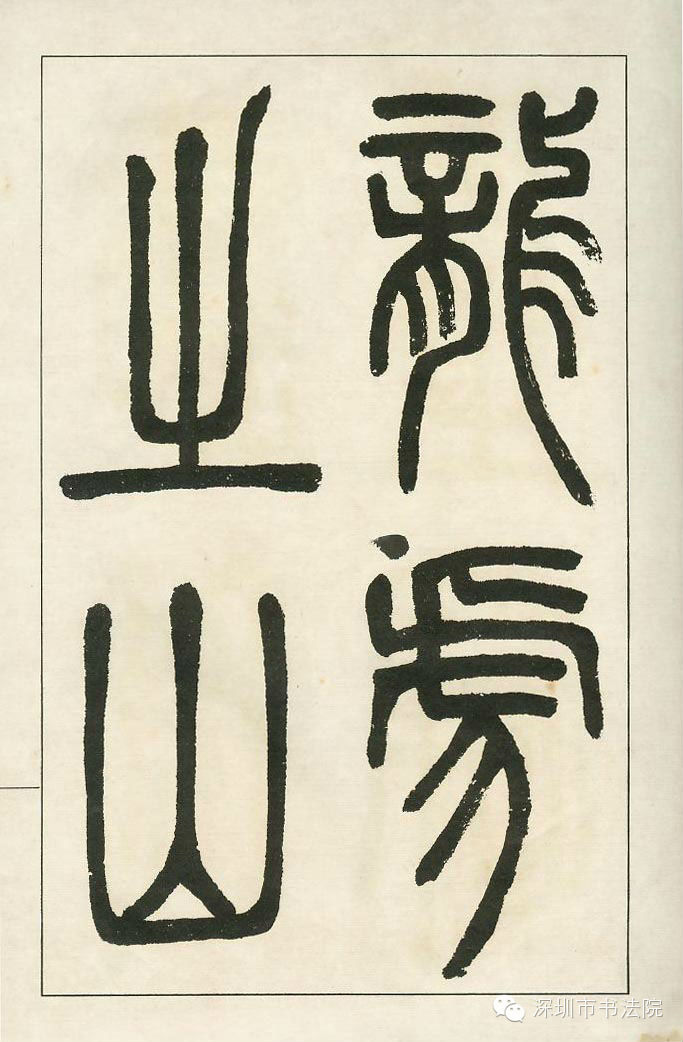 龍虎
之山
深圳市书法院